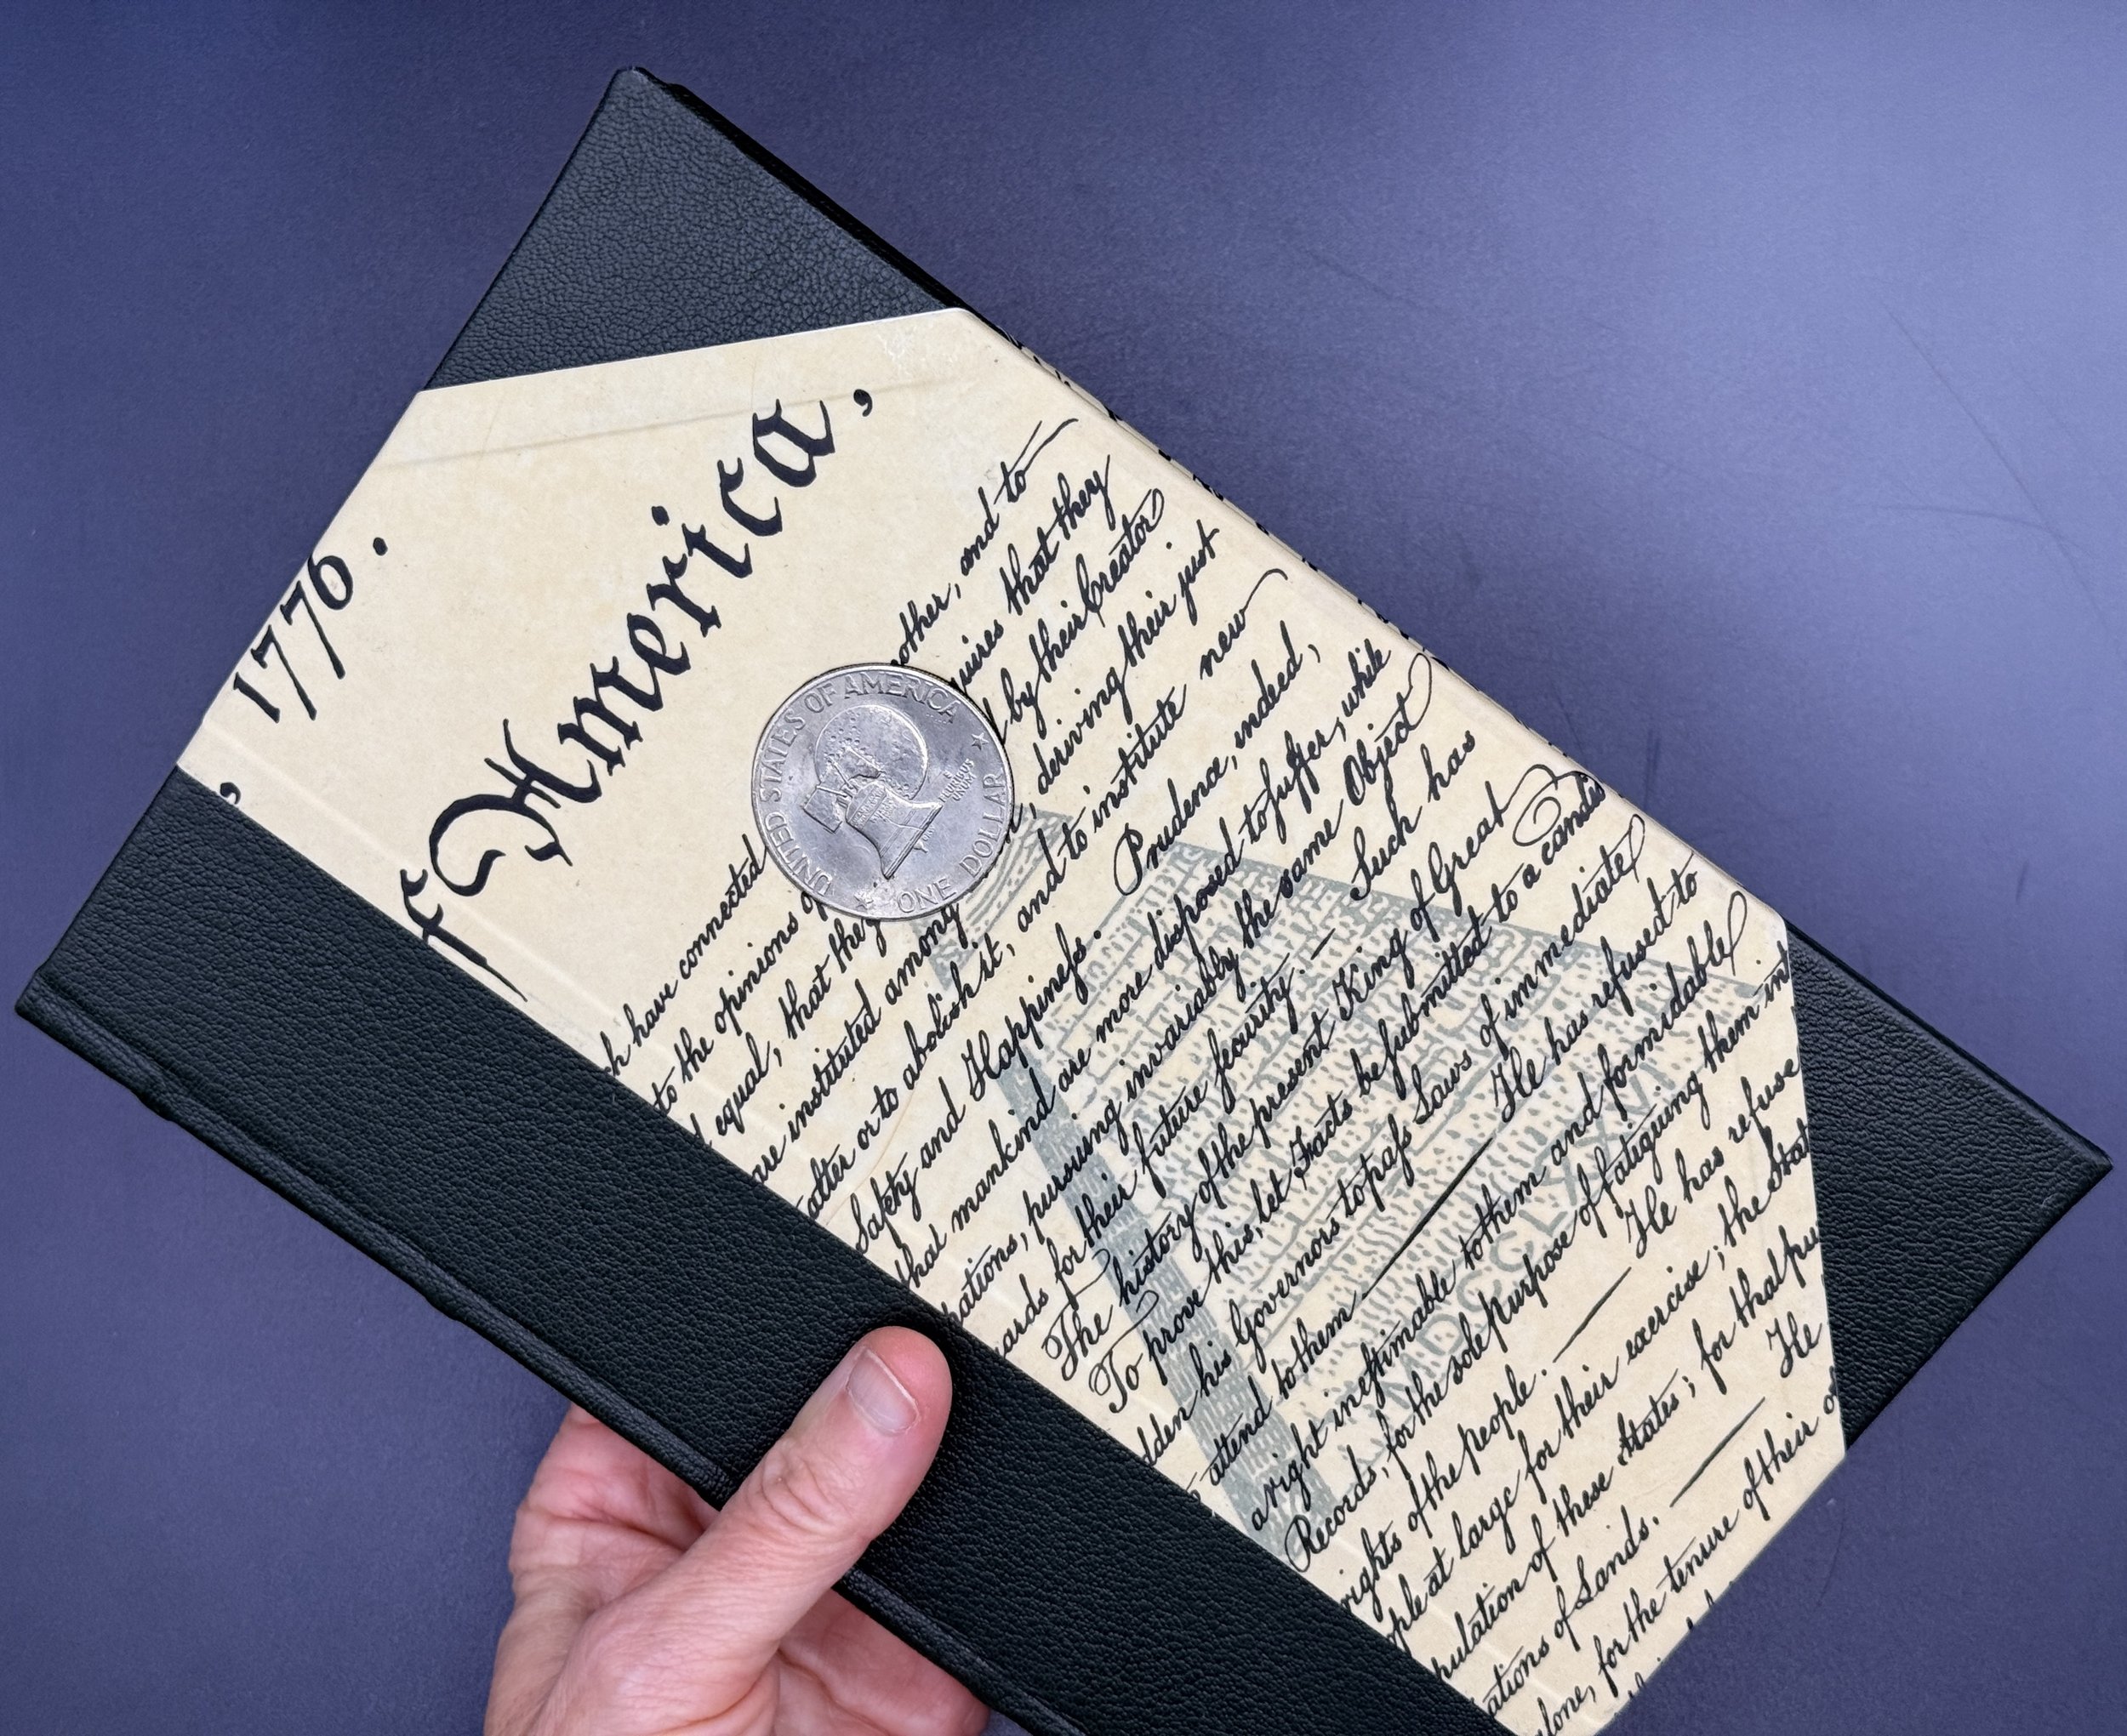 1776.
,
f America,
other, and to
ch have connected
quires that they
to the opinions of
by their Creator
equal, that they
deriving their just
are instituted among
alter or to abolish it, and to institute new
Safety and Happineſs. Prudence, indeed,
that mankind are more disposed to ſuffer, while
pursuing invariably the same Object
for their future ſecurity. — Such has
The history of the present King of Great
To prove this, let Facts be ſubmitted to a candid
his Governors to paſs Laws of immediate
attend to them — He has refused to
a right ineſtimable to them and formidable
Records, for the sole purpose of fatiguing them int
rights of the people. — He has refuse
ople at large for their exercise; the Stat
pulation of these States; for that pu
ations of Lands. — He
alone, for the tenure of their o
MDCCLXXVI
UNITED STATES OF AMERICA
LIBERTY
E PLURIBUS UNUM
ONE DOLLAR